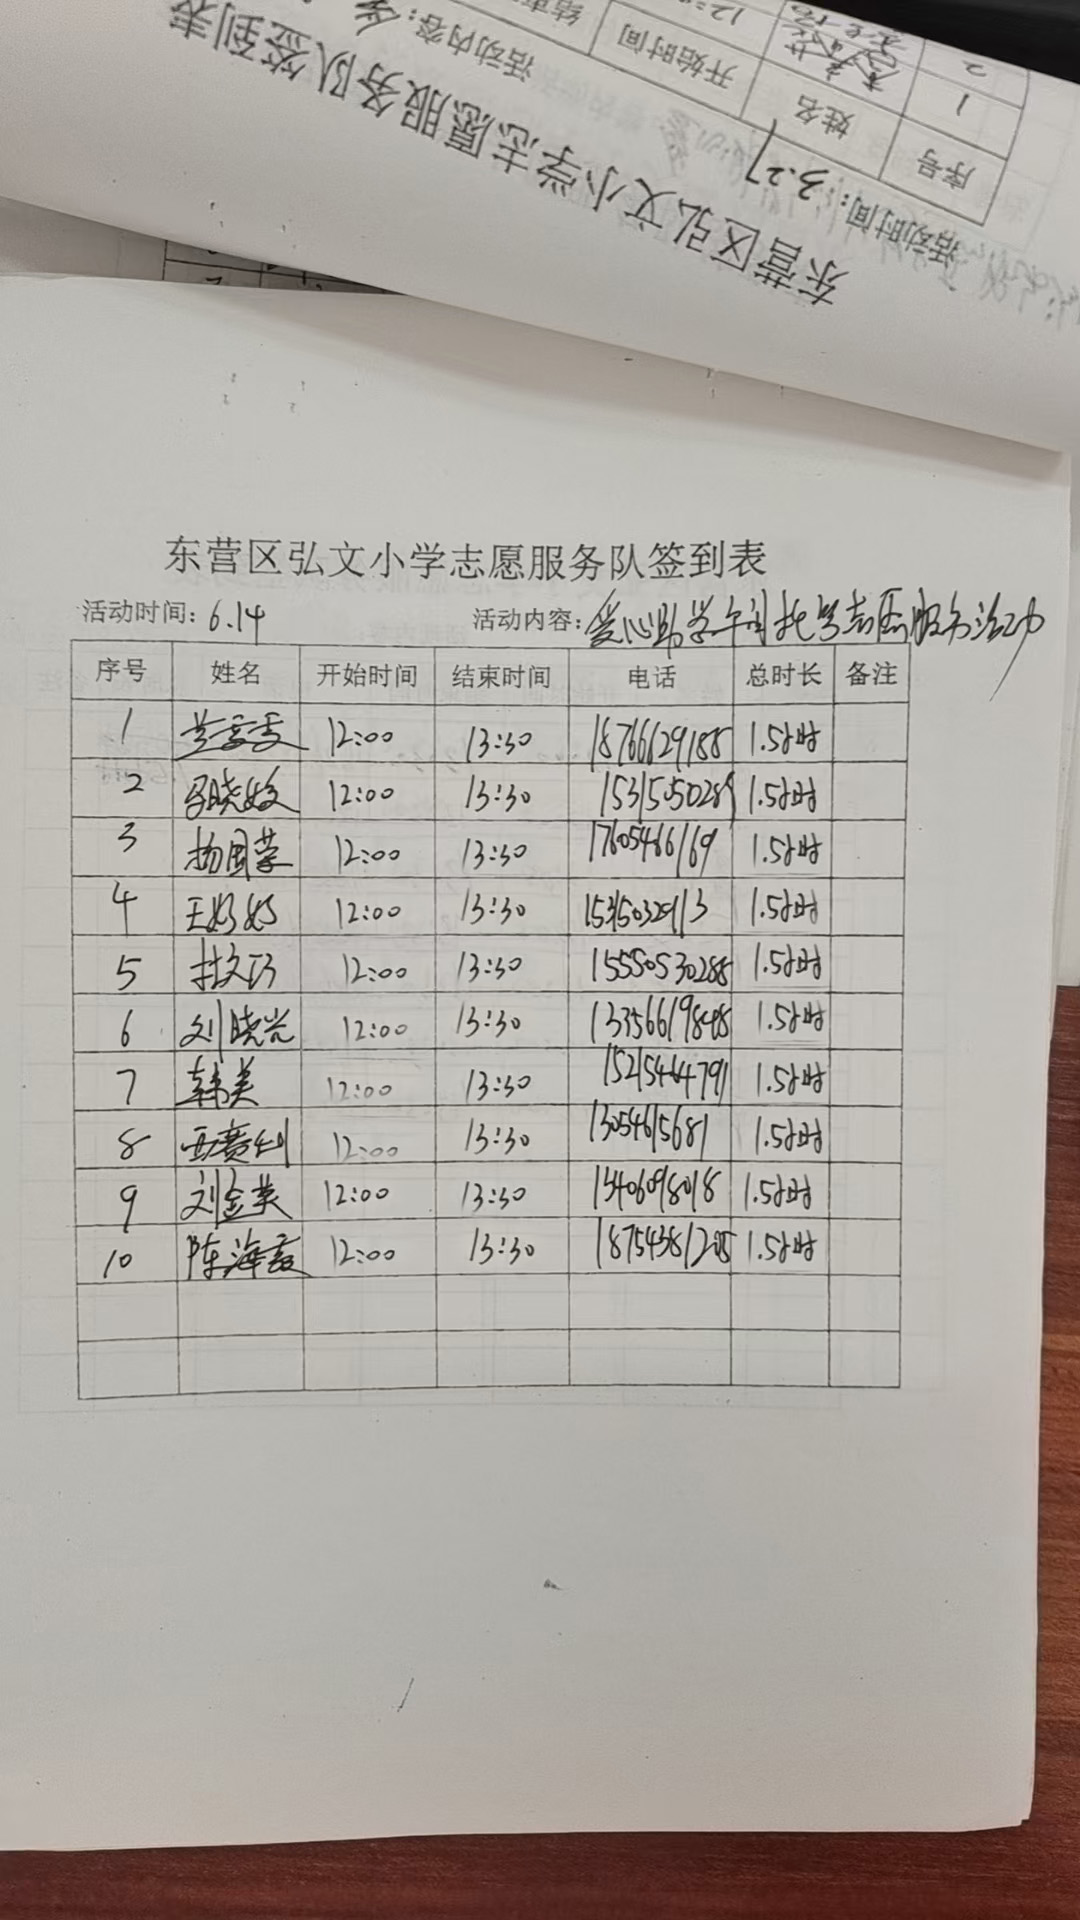 东营区弘文小学志愿服务队签到表
活动时间：3.27
活动内容：
序号 姓名 开始时间
1
2
东营区弘文小学志愿服务队签到表
活动时间：6.14 活动内容：爱心助学午间托管志愿服务活动
序号 姓名 开始时间 结束时间 电话 总时长 备注
1 12:00 13:30 18766629188 1.5小时
2 马晓姣 12:00 13:30 15315050289 1.5小时
3 杨国荣 12:00 13:30 17605466169 1.5小时
4 王好好 12:00 13:30 15315032913 1.5小时
5 12:00 13:30 15550530288 1.5小时
6 刘晓光 12:00 13:30 13356619848 1.5小时
7 韩美 12:00 13:30 15215464791 1.5小时
8 12:00 13:30 13054615681 1.5小时
9 刘金英 12:00 13:30 15406098018 1.5小时
10 陈海霞 12:00 13:30 18754381205 1.5小时